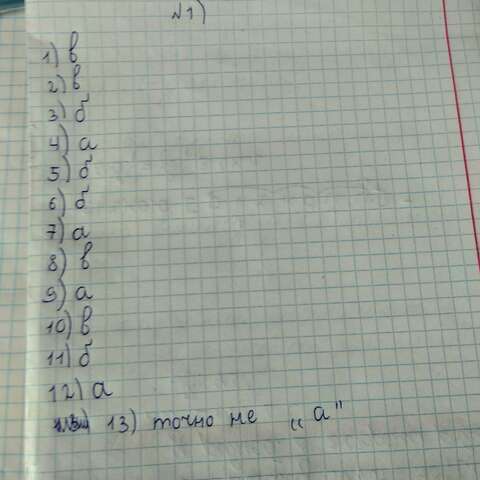 №1)
1) в
2) в
3) б
4) а
5) б
6) б
7) а
8) в
9) а
10) в
11) б
12) а
13) точно не „а"